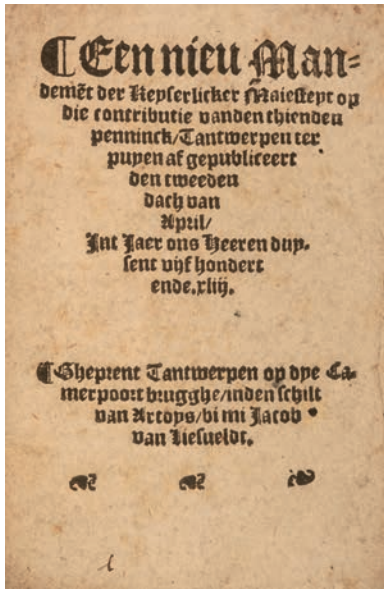 ¶Een nieu Man=
demēt der Keyserlicker Maiesteyt op
die contributie vanden thienden
penninck/Tantwerpen ter
puyen af gepubliceert
den tweeden
dach van
April/
Int Jaer ons Heeren duy-
sent vijf hondert
ende.xliij.
¶Gheprent Tantwerpen op dye Ca-
merpoort brugghe/inden schilt
van Artoys/bi mi Jacob
van Liesueldt.